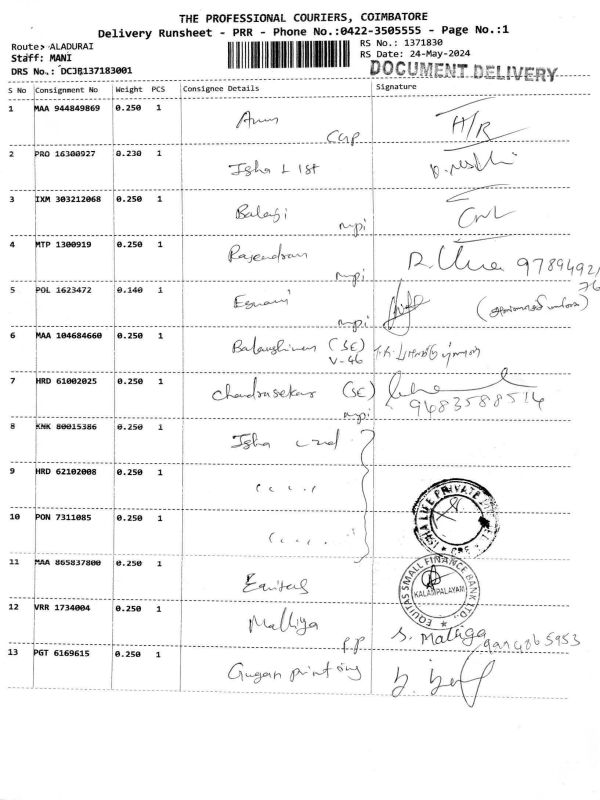 THE PROFESSIONAL COURIERS, COIMBATORE
Delivery Runsheet - PRR - Phone No.:0422-3505555 - Page No.:1
Route: ALADURAI
RS No.: 1371830
Staff: MANI
RS Date: 24-May-2024
DRS No.: DCJB137183001
DOCUMENT DELIVERY
S No Consignment No Weight PCS Consignee Details Signature
1 MAA 944849869 0.250 1 Arun
2 PRO 16300927 0.230 1 Isha L 1st
3 IXM 303212068 0.250 1 Balaji mpi
4 MTP 1300919 0.250 1 Rajendran mpi
5 POL 1623472 0.140 1 mpi
6 MAA 104684660 0.250 1 (SE)
V-46
7 HRD 61002025 0.250 1 Chandrasekar (SE)
mpi 9683588514
8 KNK 80015386 0.250 1 Isha
9 HRD 62102008 0.250 1
10 PON 7311085 0.250 1
ISHA LIFE PRIVATE LIMITED
11 MAA 865837800 0.250 1 Equitas
EQUITAS SMALL FINANCE BANK LTD.,
KALAMPALAYAM
12 VRR 1734004 0.250 1 Malliya P.P
13 PGT 6169615 0.250 1 Gugan printing